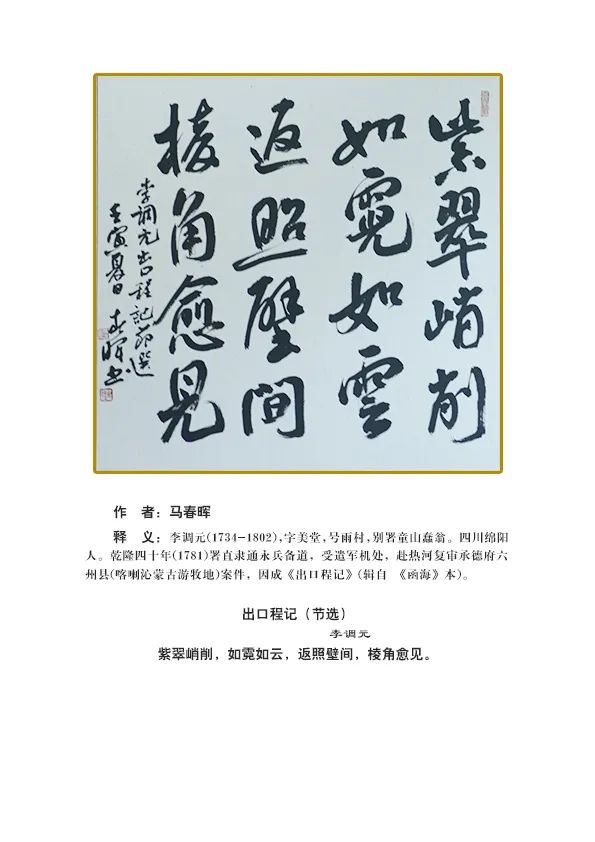 紫翠峭削
如霓如雲
返照壁间
棱角愈見
李調元出口程記節選
壬寅夏日 春晖书
作 者：马春晖
释 义：李调元(1734-1802)，字美堂，号雨村，别署童山蠢翁。四川绵阳
人。乾隆四十年(1781)署直隶通永兵备道，受遣军机处，赴热河复审承德府六
州县(喀喇沁蒙古游牧地)案件，因成《出口程记》(辑自 《函海》本)。
出口程记（节选）
李调元
紫翠峭削，如霓如云，返照壁间，棱角愈见。